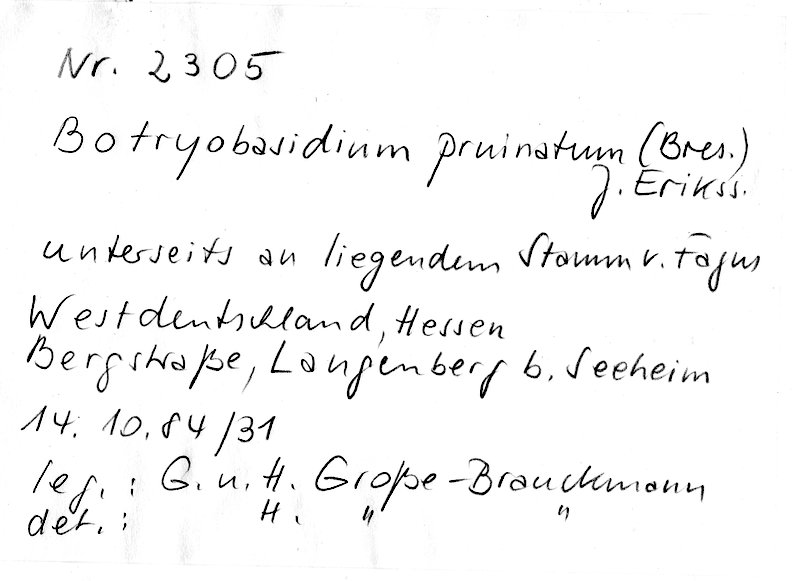 Nr. 2305
Botryobasidium pruinatum (Bres.)
J. Erikss.
unterseits an liegendem Stamm v. Fagus
Westdeutschland, Hessen
Bergstraße, Langenberg b. Seeheim
14. 10. 84 /31
leg. : G. u. H. Große-Brauckmann
det. : H. " "